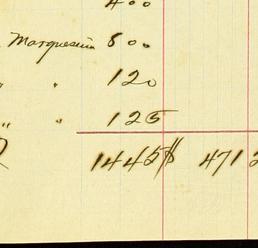 400
Marquesina 800
" " 120
" " 125
1445$ 4712